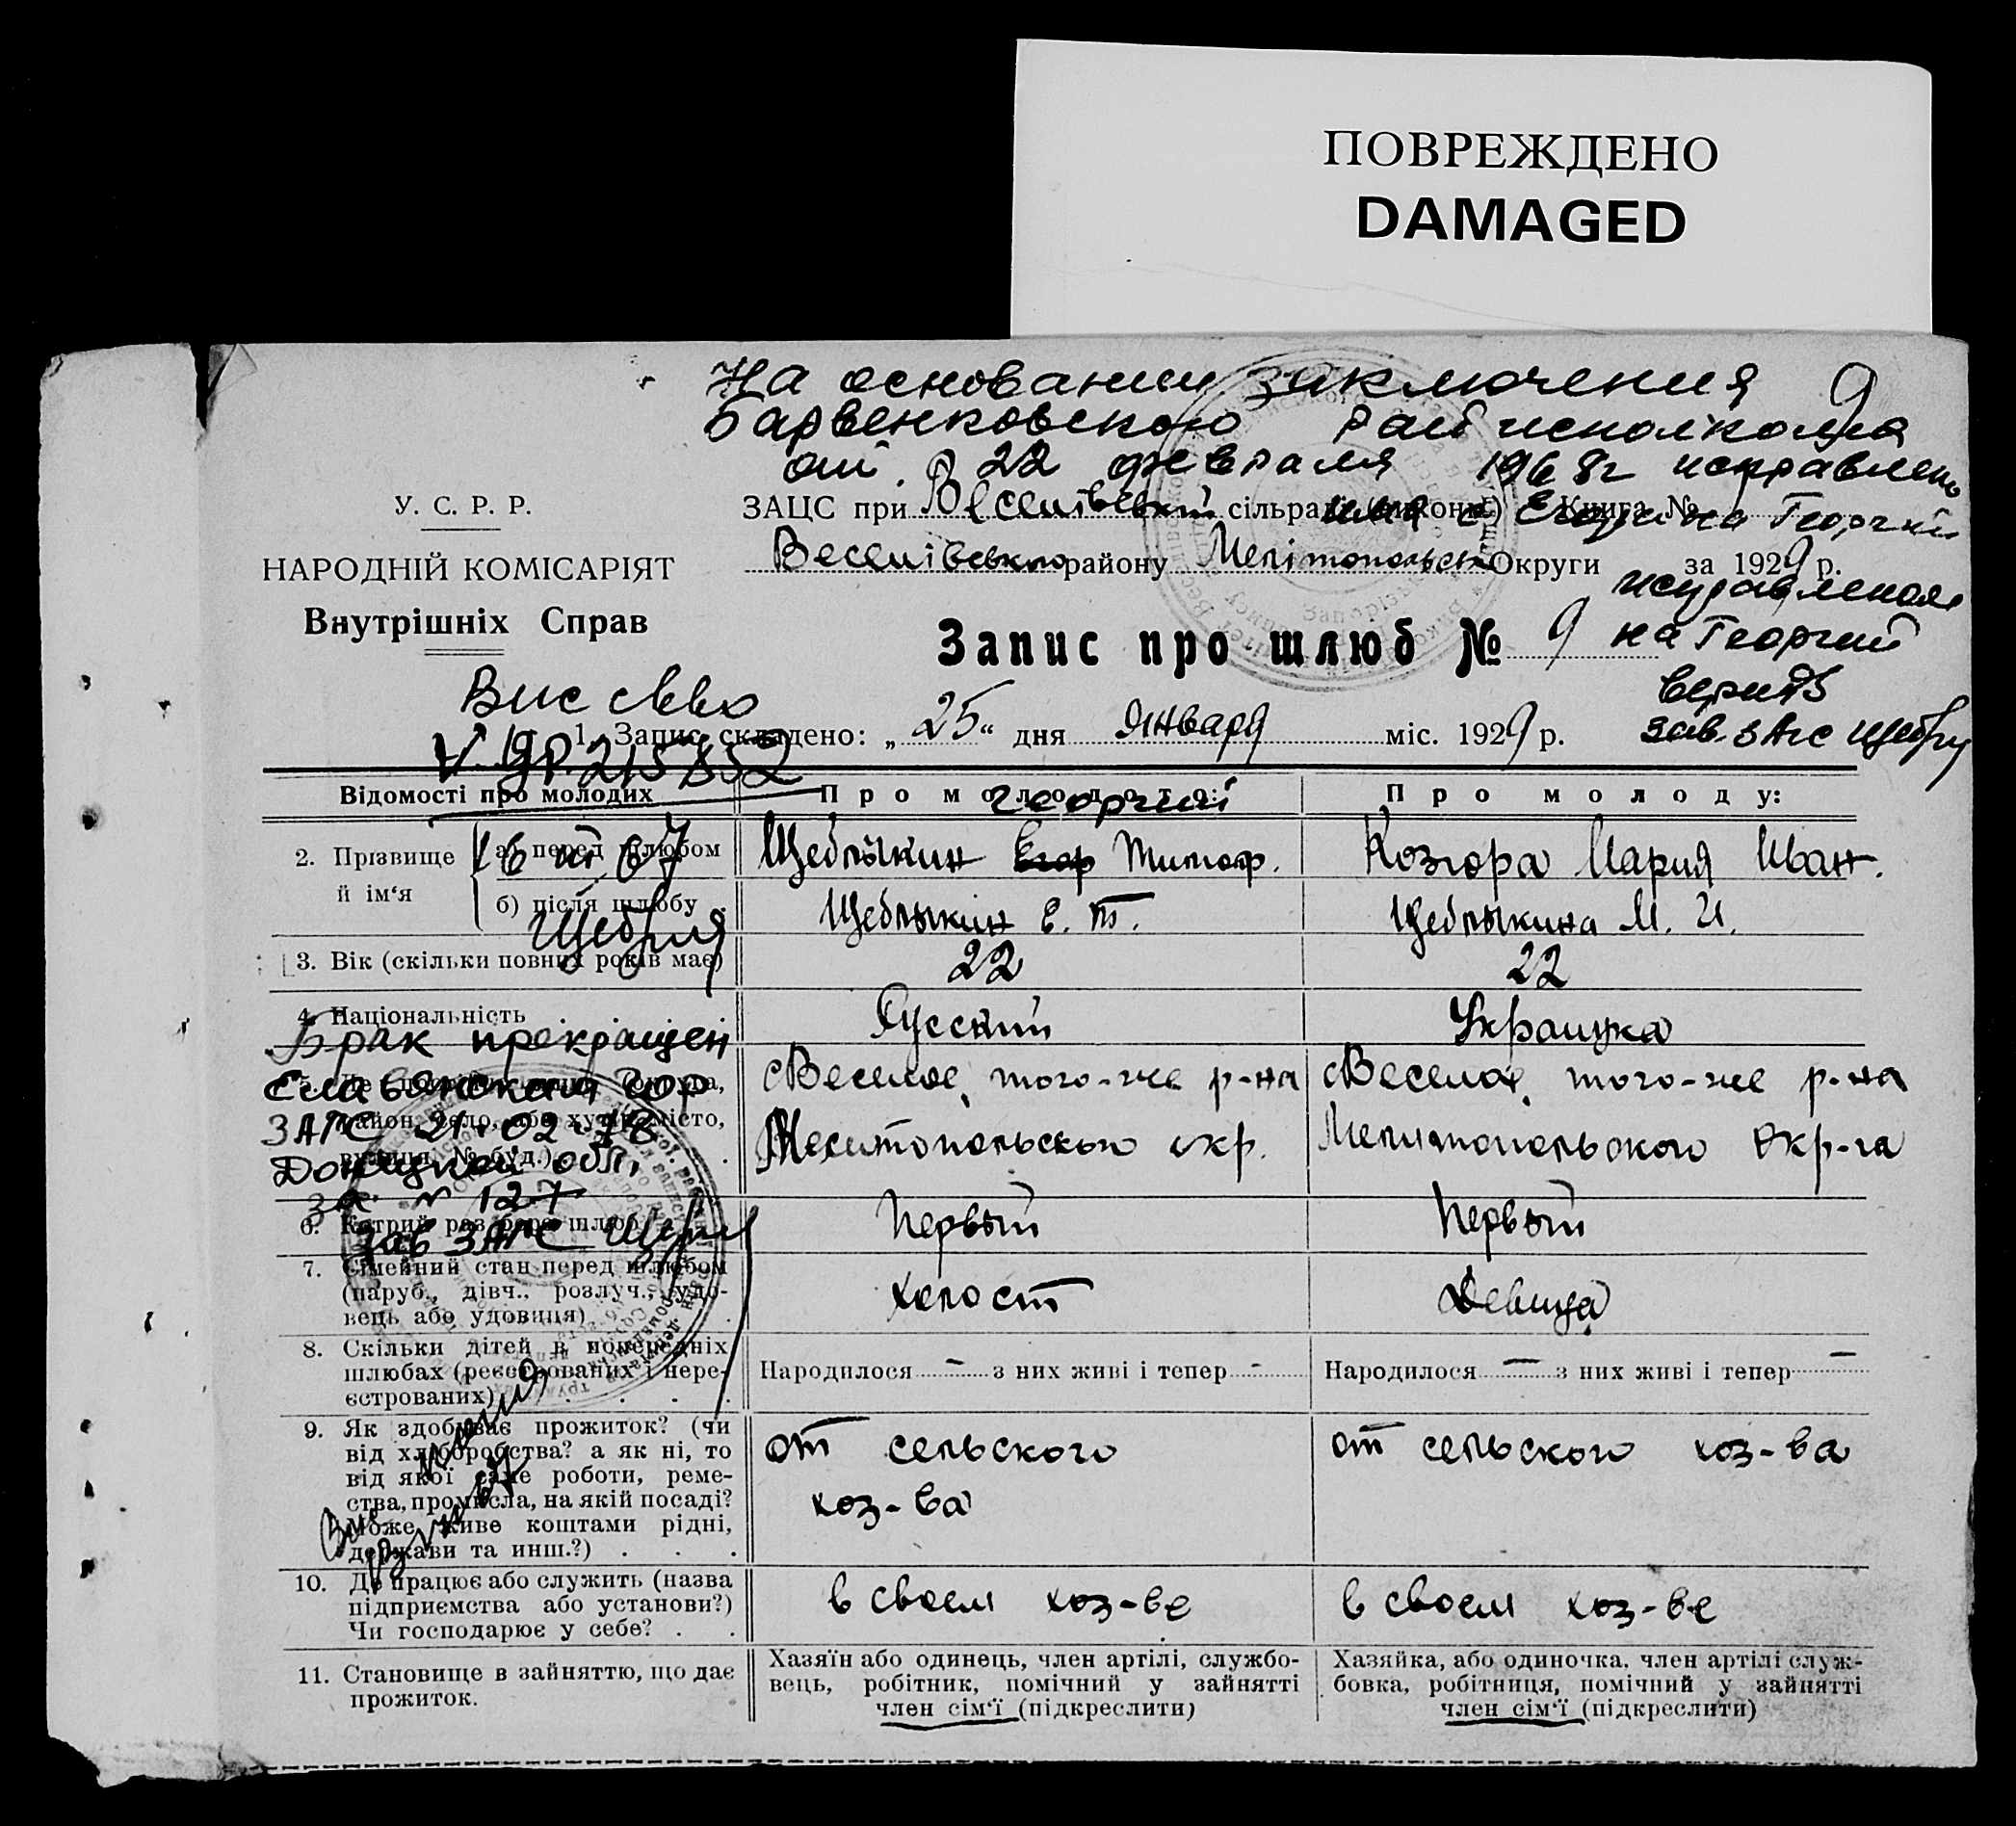 ПОВРЕЖДЕНО
DAMAGED
На основании заключения 9
Барвенковского райисполкома
от 22 февраля 1968г исправлено
имя с Егор на Георгий
У. С. Р. Р.
НАРОДНІЙ КОМІСАРІЯТ
Внутрішніх Справ
ЗАЦС при Веселівській сільраді Книга №
Веселівського району Мелітопольськ Округи за 1929 р.
исправленом
на Георгий
верить
зав. ЗАГС
Запис про шлюб № 9
1. Запис складено: „25“ дня Января міс. 1929 р.
Відомості про молодих
Про молодого:
Про молоду:
Георгий
2. Прізвище й ім‘я
а) перед шлюбом
Щеблыкин Егор Тимоф.
Козюра Мария Иван.
б) після шлюбу
Щеблыкин Е. Т.
Щеблыкина М. И.
3. Вік (скільки повних років має)
22
22
4. Національність
Русский
Украинка
Брак прекращен
ЗАГС 21.02.78
Донецкой обл,
за № 127
зав ЗАГС
с Веселое, того-же р-на
Мелитопольского окр.
с Веселое, того-же р-на
Мелитопольского Окр-га
6. Котрий раз бере шлюб
Первый
Первый
7. Сімейний стан перед шлюбом
(паруб., дівч., розлуч., удо-
вець або удовиця)
холост
Девица
8. Скільки дітей в попередніх
шлюбах (реєстрованих і нере-
єстрованих)
Народилося — з них живі і тепер -
Народилося — з них живі і тепер —
9. Як здобуває прожиток? (чи
від хліборобства? а як ні, то
від якої саме роботи, реме-
ства, промисла, на якій посаді?
Може живе коштами рідні,
держави та инш.?)
от сельского
хоз-ва
от сельского хоз-ва
10. Де працює або служить (назва
підприємства або установи?)
Чи господарює у себе?
в своем хоз-ве
в своем хоз-ве
11. Становище в зайняттю, що дає
прожиток.
Хазяїн або одинець, член артілі, службо-
вець, робітник, помічний у зайнятті
член сім‘ї (підкреслити)
Хазяйка, або одиночка, член артілі служ-
бовка, робітниця, помічний у зайнятті
член сім‘ї (підкреслити)